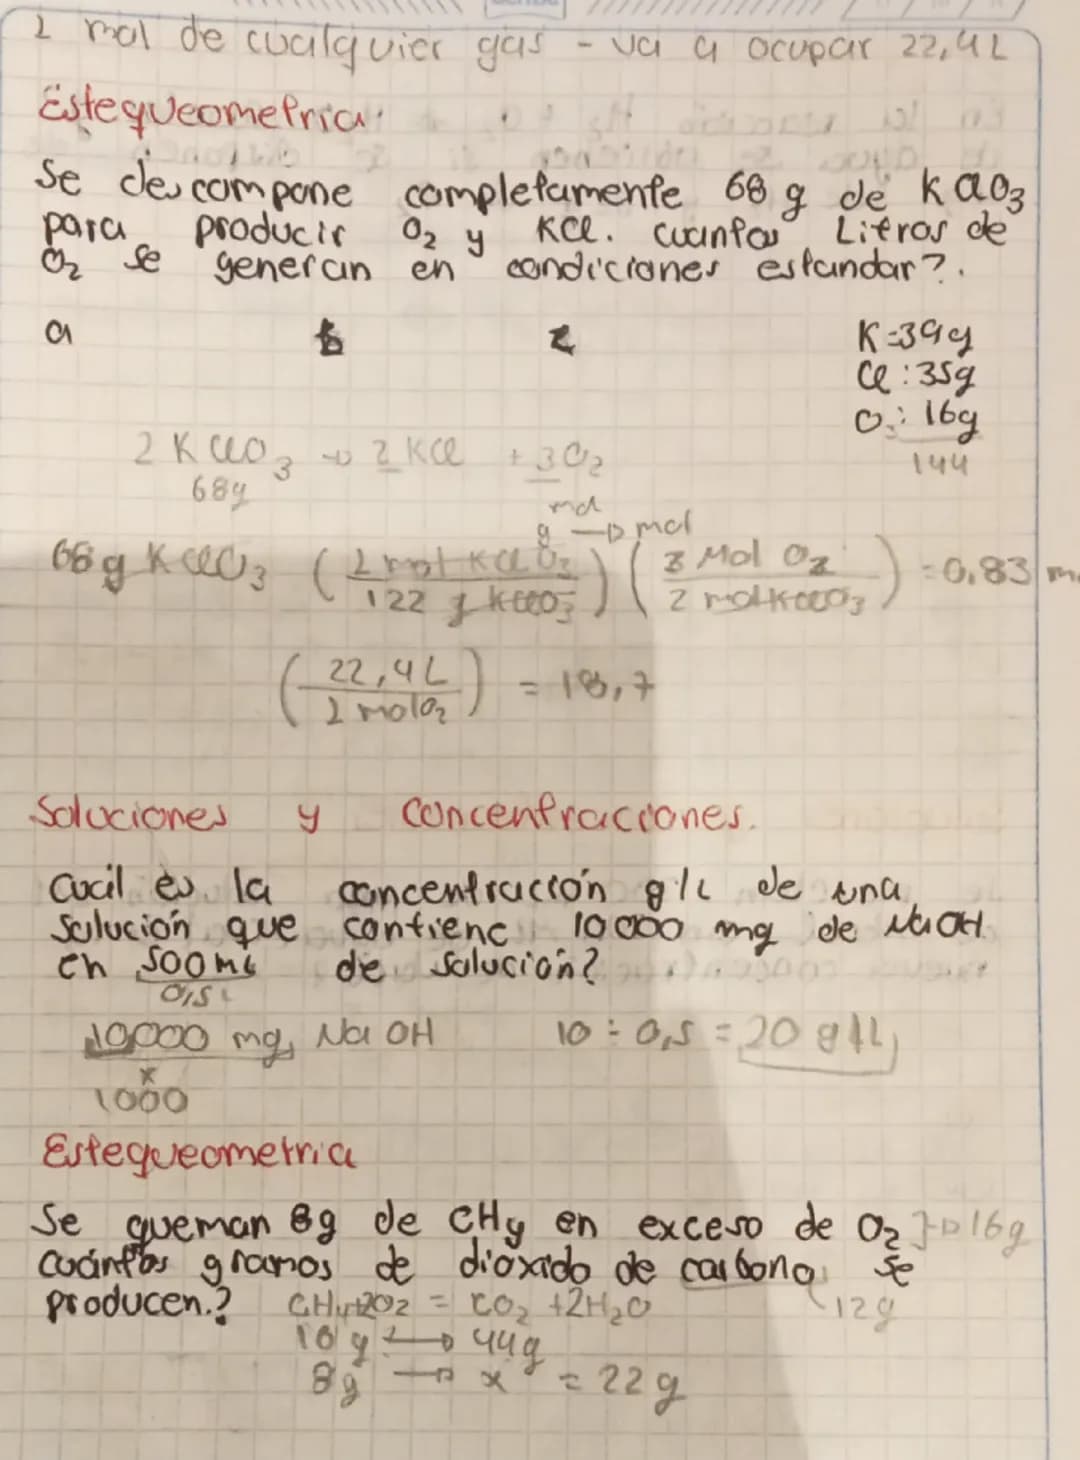 1 mol de cualquier gas - va a ocupar 22,4 L
Estequeometria:
Se descompone completamente 68 g de KClO3
para producir O2 y KCl. cuantos Litros de
O2 se generan en condiciones estandar?.
a b c
K=39g
Cl: 35g
O: 16g
144
2 KClO3 → 2 KCl + 3O2
68g
mol
g → mol
68 g KClO3 (1 mol KClO3 / 122 g KClO3) (3 Mol O2 / 2 mol KClO3) = 0,83 m
(22,4 L / 1 mol O2) = 18,7
Soluciones y concentraciones.
Cuál es la concentración g/L de una
solución que contiene 10000 mg de NaOH
en 500mL de solución?
0,5 L
10000 mg NaOH 10 ÷ 0,5 = 20 g/L
x
1000
Estequeometria
Se queman 8g de CH4 en exceso de O2 }→ 16g
cuántos gramos de dioxido de carbono se
producen.? CH4+2O2 = CO2 +2H2O 12g
16 g → 44g
8g → x = 22 g